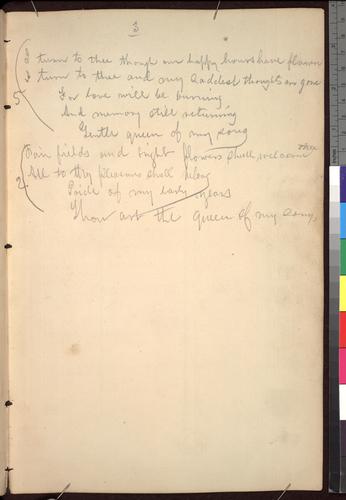 3
I turn to thee though our happy hours have flown
I turn to thee and my saddest thoughts are gone
5
For love will be burning
And memory still returning
Gentle queen of my song
Fair fields and bright flowers shall welcome thee
2
All to thy pleasures shall belong
Pride of my early years
Thou art the queen of my song,